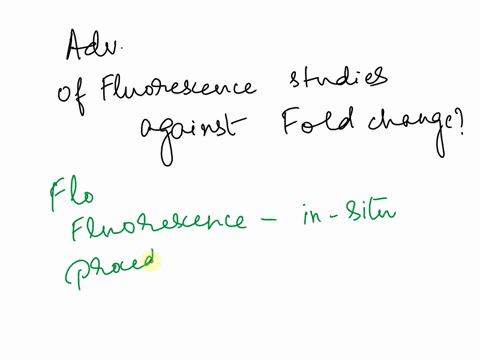 Adv.
of Fluorescence studies
against Fold change?
Flo
Fluorescence - in-situ
proced